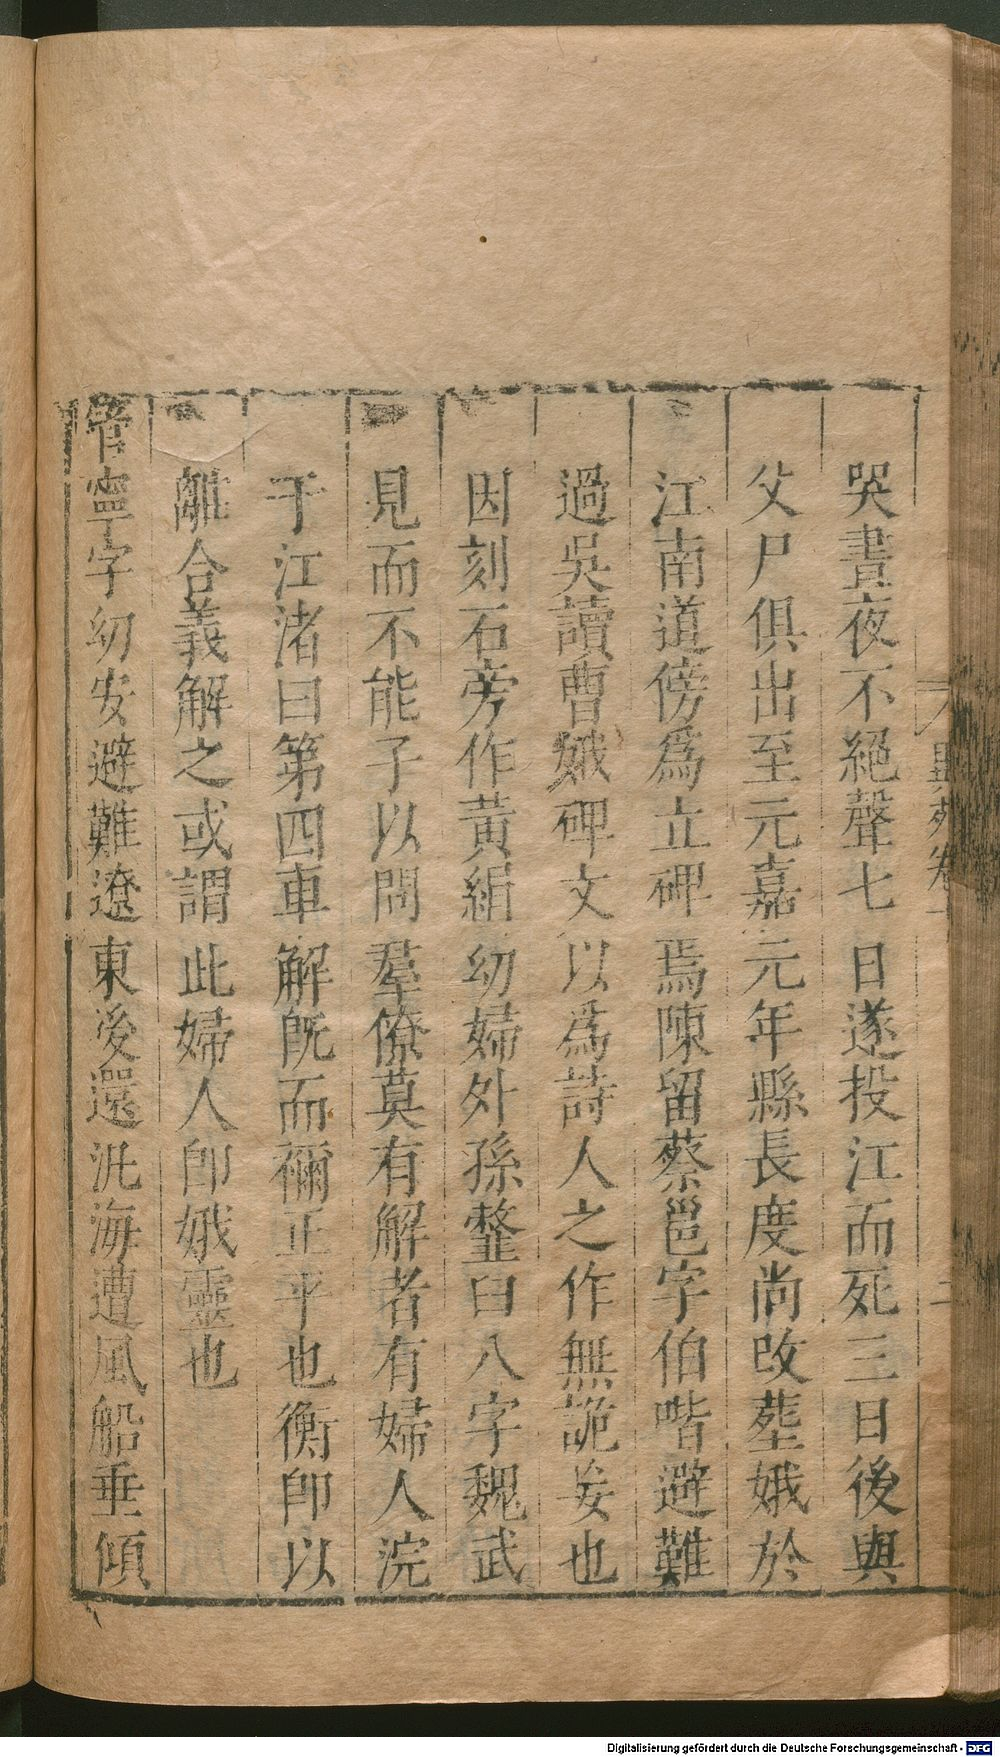 哭晝夜不絕聲七日遂投江而死三日後與
父尸俱出至元嘉元年縣長度尚改葬娥於
江南道傍爲立碑焉陳留蔡邕字伯喈避難
過吳讀曹娥碑文以爲詩人之作無詭妄也
因刻石旁作黃絹幼婦外孫虀臼八字魏武
見而不能子以問羣僚莫有解者有婦人浣
于江渚曰第四車解既而禰正平也衡卽以
離合義解之或謂此婦人卽娥靈也
管寧字幼安避難遼東後還汎海遭風船垂傾
異苑卷十
二
Digitalisierung gefördert durch die Deutsche Forschungsgemeinschaft - DFG